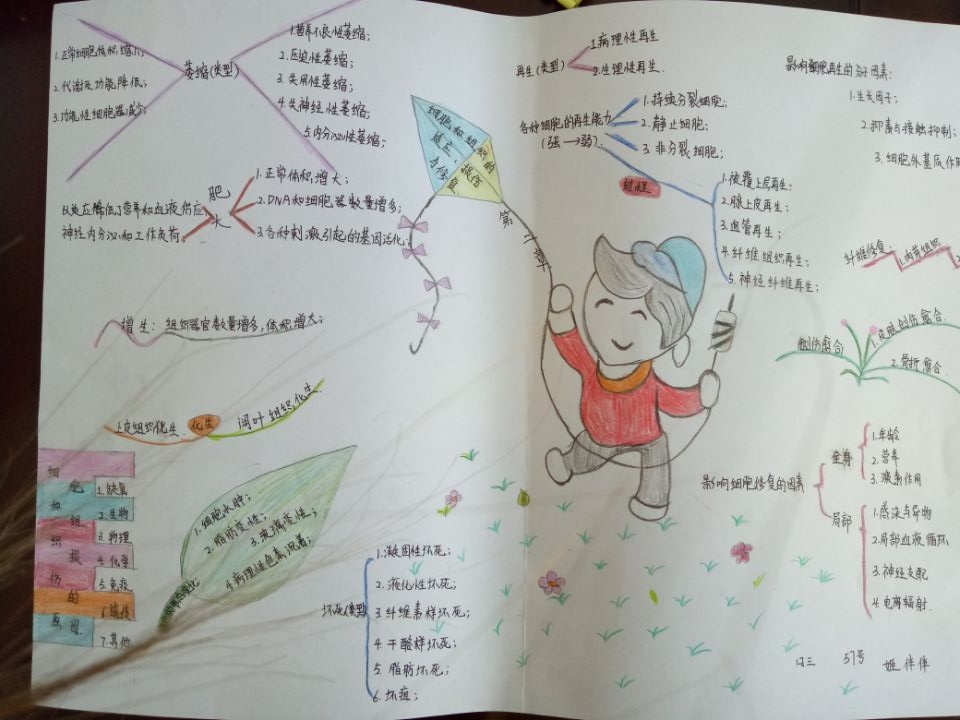 萎缩(类型)
1.正常细胞体积缩小;
2.代谢及功能降低;
3.功能性细胞器减少;
1.营养不良性萎缩;
2.压迫性萎缩;
3.失用性萎缩;
4.失神经性萎缩;
5.内分泌性萎缩;
细胞和组织的
适应、损伤
与修复
第十章
肥大
神经内分泌和工作负荷
1.正常体积增大;
2.DNA和细胞器数量增多;
3.各种刺激引起的基因活化;
增生: 组织器官数量增多,体积增大;
上皮组织化生.
化生
间叶组织化生.
细胞和组织损伤的原因
1.缺氧
2.生物
3.物理
4.化学
5.免疫
6.遗传
7.其他
1.细胞水肿;
2.脂肪变性;
3.玻璃变性;
4.病理性色素沉着;
坏死(类型)
1.凝固性坏死;
2.液化性坏死;
3.纤维素样坏死;
4.干酪样坏死;
5.脂肪坏死;
6.坏疽;
再生(类型)
1.病理性再生
2.生理性再生.
各种细胞的再生能力
(强→弱):
1.持续分裂细胞;
2.静止细胞;
3.非分裂细胞;
过程
1.被覆上皮再生;
2.腺上皮再生;
3.血管再生;
4.纤维组织再生;
5.神经纤维再生;
影响细胞再生的分子因素:
1.生长因子;
2.抑素与接触抑制;
3.细胞外基质作用
纤维修复:
1.肉芽组织
2
创伤愈合
1.皮肤创伤愈合.
2.骨折愈合.
影响细胞修复的因素
全身
1.年龄
2.营养
3.激素作用
局部
1.感染与异物
2.局部血液循环
3.神经支配
4.电离辐射.
口三 57号 姬伴伴